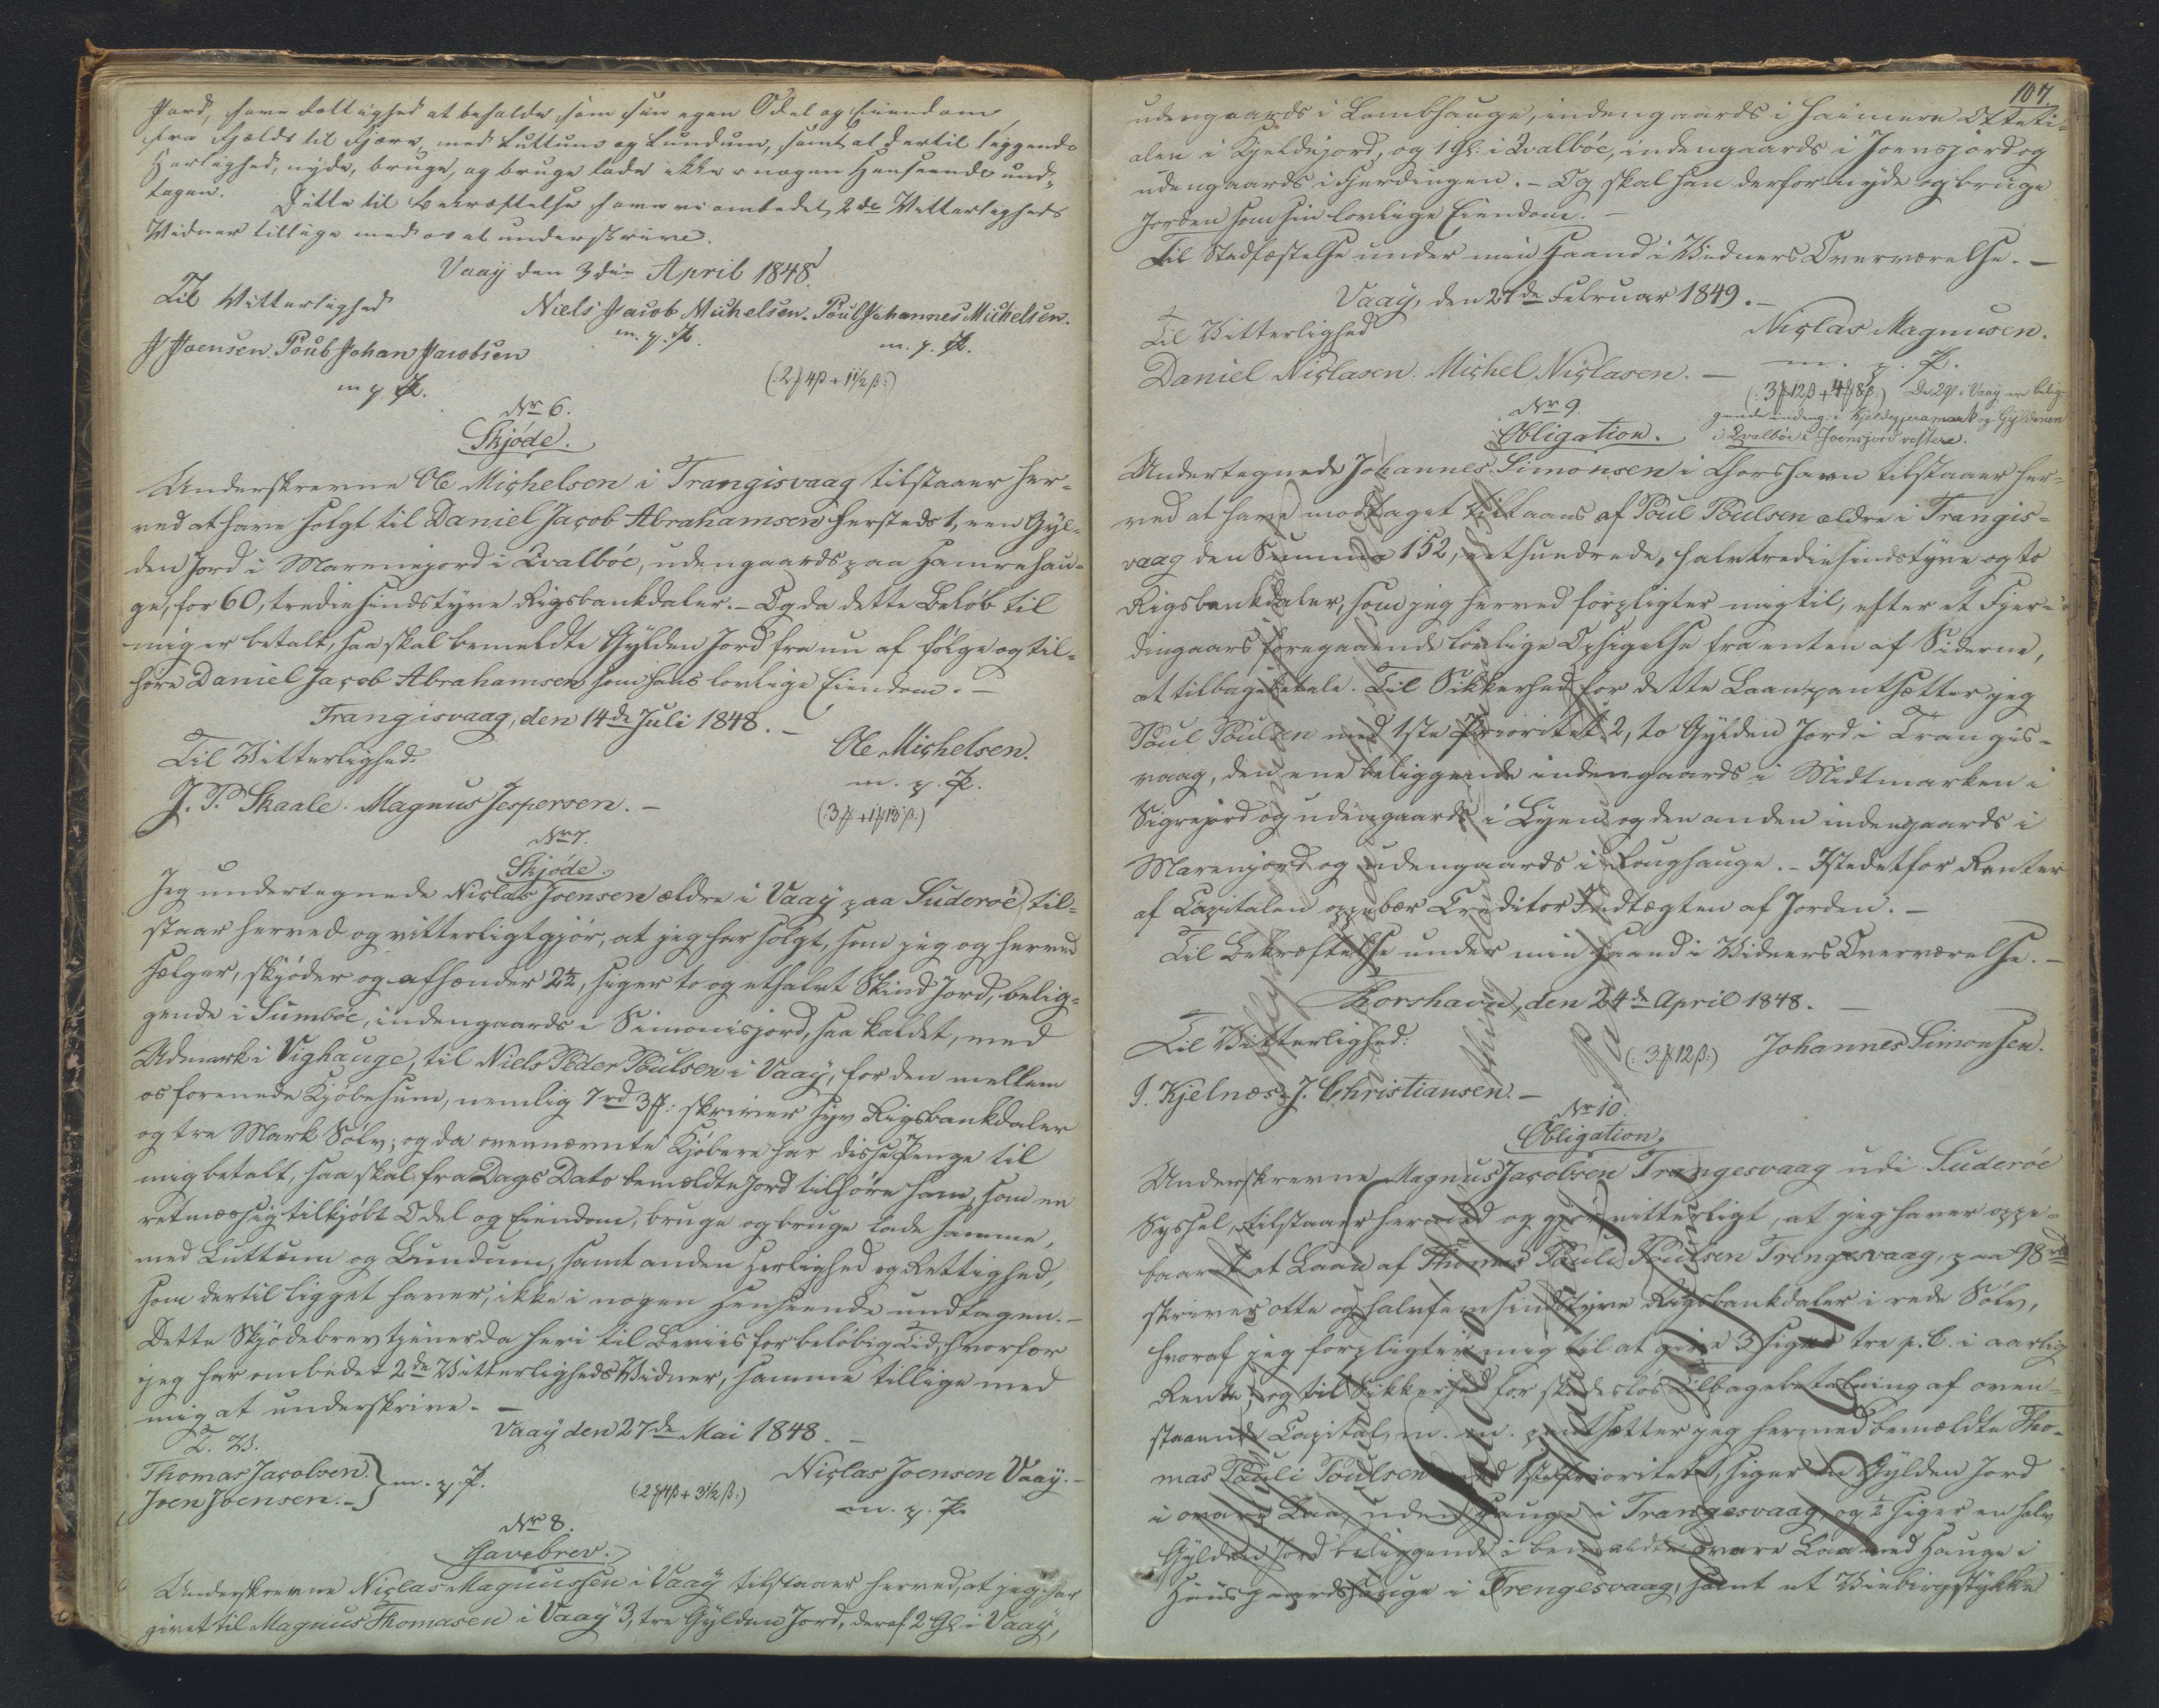 Jord, have Rettighed at beholde som sin egen Odel og Eiendom
fra Fjelds til Fjære, med Luttum og Lundum, samt al dertil liggende
Herlighed, nyde, bruge, og bruge lade ikke i nogen Henseende und-
tagen. Dette til Bekræftelse have vi ombedet 2de Vitterligheds
Vidner tillige med os at underskrive.
Vaaÿ den 3die April 1848.
Til Vitterlighed Niels Jacob Michelsen. Poul Johannes Michelsen.
J Joensen. Poul Johan Jacobsen m. p. P. m. p. P.
m p P. (2ȸ 4β + 1½ β:)
Nr 6.
Skjøde.
Underskrevne Ole Michelsen i Trangisvaag tilstaaer her-
ved at have solgt til Daniel Jacob Abrahamsen hersteds 1, een Gyl-
den Jord i Mareniejord i Qvalböe, udengaards paa Hamrehau-
ge, for 60, trediesindstyve Rigsbankdaler. - Og da dette Beløb til
mig er betalt, saa skal bemeldte Gylden Jord fra nu af følge og til-
høre Daniel Jacob Abrahamsen som hans lovlige Eiendom. -
Trangisvaag, den 14de Juli 1848. -
Til Vitterlighed: Ole Michelsen.
J. P. Skaale. Magnus Jespersen. - m. p. P.
(3ȸ + 1ȸ 13 β:)
Nr 7.
Skjøde.
Jeg undertegnede Niclas Joensen ældre i Vaaÿ paa Suderöe til-
staar herved og vitterligtgjør, at jeg har solgt, som jeg og herved
sælger, skjøder og afhænder 2½, siger to og ethalvt Skind Jord, belig-
gende i Sumböe, indengaards i Simonisjord, saa kaldet, med
Udmark i Vighauge, til Niels Peder Poulsen i Vaaÿ, for den mellem
os forenede Kjøbesum, nemlig 7rd 3ȸ: skriver syv Rigsbankdaler
og tre Mark Sølv; og da ovennævnte Kjøbere har disse Penge til
mig betalt, saa skal fra Dags Dato bemeldte Jord tilhøre ham, som en
retmæssig tilkjøbt Odel og Eiendom, bruge og bruge lade samme,
med Luttum og Lundum, samt anden Herlighed og Rettighed,
som dertil ligget haver, ikke i nogen Henseende undtagen. -
Dette Skjødebrev tjener da heri til Beviis for beløbig Tid, hvorfor
jeg har ombedet 2de Vitterligheds Vidner, samme tillige med
mig at underskrive. -
T. V. Vaaÿ den 27de Mai 1848. -
Thomas Jacobsen. Niclas Joensen Vaaÿ. -
Joen Joensen. - m. p. P. (2ȸ 4β + 3½ β:) m. p. P.
Nr 8.
Gavebrev.
Underskrevne Niclas Magnussen i Vaaÿ tilstaaer herved, at jeg har
givet til Magnus Thomasen i Vaaÿ 3, tre Gylden Jord, deraf 2 Gl i Vaaÿ,
107.
udengaards i Lambhauge, indengaards i Haimere
alen i Kjeldejord, og 1 Gl: i Qvalböe, indengaards i Joensjord og
udengaards i Fjerdingen. - Og skal han derfor nyde og bruge
Jorden som sin lovlige Eiendom. -
Til Stadfæstelse under min Haand i Vidners Overværelse. -
Vaaÿ, den 27de Februar 1849. -
Til Vitterlighed Niclas Magnusen.
Daniel Niclasen. Michel Niclasen. - m. p. P.
(3ȸ 12β + 4ȸ 8β:) De 2 Gl. i Vaaÿ ere belig-
Nr 9. gende indeng. i Kjeldegjeramark og Gyldenen
Obligation. i Qvalböe i Joensjord vestere.
Undertegnede Johannes Simonsen i Thorshavn tilstaaer her-
ved at have modtaget til Laans af Poul Poulsen ældre i Trangis-
vaag den Summa 152, eethundrede, halvtrediesindstyve og to
Rigsbankdaler, som jeg herved forpligter mig til, efter et Fjer-
dingaars foregaaende lovlige Opsigelse fra enten af Siderne,
at tilbagebetale. Til Sikkerhed for dette Laan pantsætter jeg
Poul Poulsen med 1ste Prioritet 2, to Gylden Jord i Trangis-
vaag, den ene beliggende indengaards i Midtmarken i
Sigrejord og udengaards i Lyen og den anden indengaards i
Marenjord og udengaards i Roughauge. - Istedetfor Renter
af Capitalen oppebær Creditor Indtægten af Jorden. -
Til Bekræftelse under min Haand i Vidners Overværelse. -
Thorshavn, den 24de April 1848. -
Til Vitterlighed: (3ȸ 12β:) Johannes Simonsen.
J. Kjelnæs. J. Christiansen. -
Nr 10.
Obligation.
Underskrevne Magnus Jacobsen Trangesvaag udi Suderöe
Syssel, tilstaaer hermed og gjør vitterligt, at jeg haver oppe-
baaret et Laan af Thomas Pauli Poulsen Trengesvaag, paa 98rd
skriver otte og halvfemsindstyve Rigsbankdaler i rede Sølv,
hvoraf jeg forpligter mig til at give 3 siger tre p. C. i aarlig
Rente, og til Sikkerhed for skadesløs Tilbagebetalning af oven-
staaende Capital, m. m. pantsætter jeg hermed bemeldte Tho-
mas Pauli Poulsen med 1ste Prioritet 1, siger en Gylden Jord
i Laa, uden Hauge i Trangesvaag, og ½ siger en halv
Gylden Jord beliggende i bemældte Laa med Hauge i
Huusgaardshauge i Trengesvaag, samt et